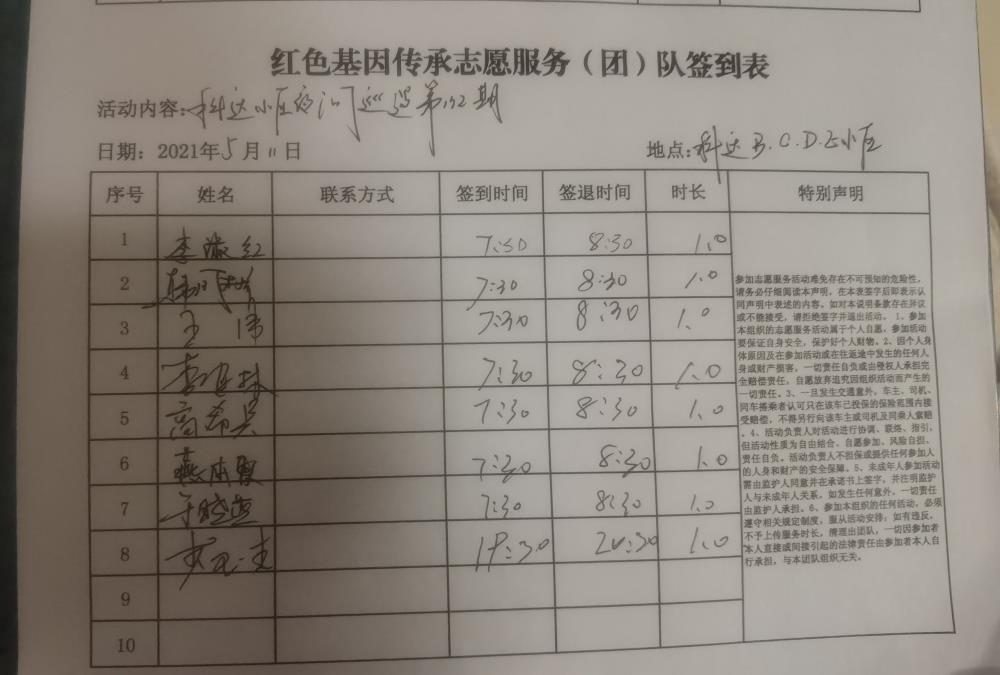 红色基因传承志愿服务（团）队签到表
活动内容：科达小区 巡逻第132期
日期：2021年5月11日
地点：科达B.C.D.E小区
序号 姓名 联系方式 签到时间 签退时间 时长 特别声明
1 李淑红 7:30 8:30 1.0
2 7:30 8:30 1.0
3 王伟 7:30 8:30 1.0
4 7:30 8:30 1.0
5 高希兵 7:30 8:30 1.0
6 7:30 8:30 1.0
7 7:30 8:30 1.0
8 19:30 20:30 1.0
9
10
参加志愿服务活动难免存在不可预知的危险性，
请务必仔细阅读本声明，在本表签字后即表示认
同声明中表述的内容。如对本说明条款存在异议
或不能接受，请拒绝签字并退出活动。 1、参加
本组织的志愿服务活动属于个人自愿，参加活动
要保证自身安全，保护好个人财物。2、因个人身
体原因及在参加活动或在往返途中发生的任何人
身或财产损害，一切责任自负或由侵权人承担完
全赔偿责任，自愿放弃追究因组织活动而产生的
一切责任。3、一旦发生交通意外，车主、司机、
同车搭乘者认可只在该车已投保的保险范围内接
受赔偿，不得另行向该车主或司机及同乘人索赔
。4、活动负责人对活动进行协调、联络、指引，
但活动性质为自由结合、自愿参加、风险自担、
责任自负。活动负责人不担保或提供任何参加人
的人身和财产的安全保障。5、未成年人参加活动
需由监护人同意并在承诺书上签字，并注明监护
人与未成年人关系，如发生任何意外，一切责任
由监护人承担。6、参加本组织的任何活动，必须
遵守相关规定制度，服从活动安排；如有违反，
不予上传服务时长，清理出团队，一切因参加者
本人直接或间接引起的法律责任由参加者本人自
行承担，与本团队组织无关。